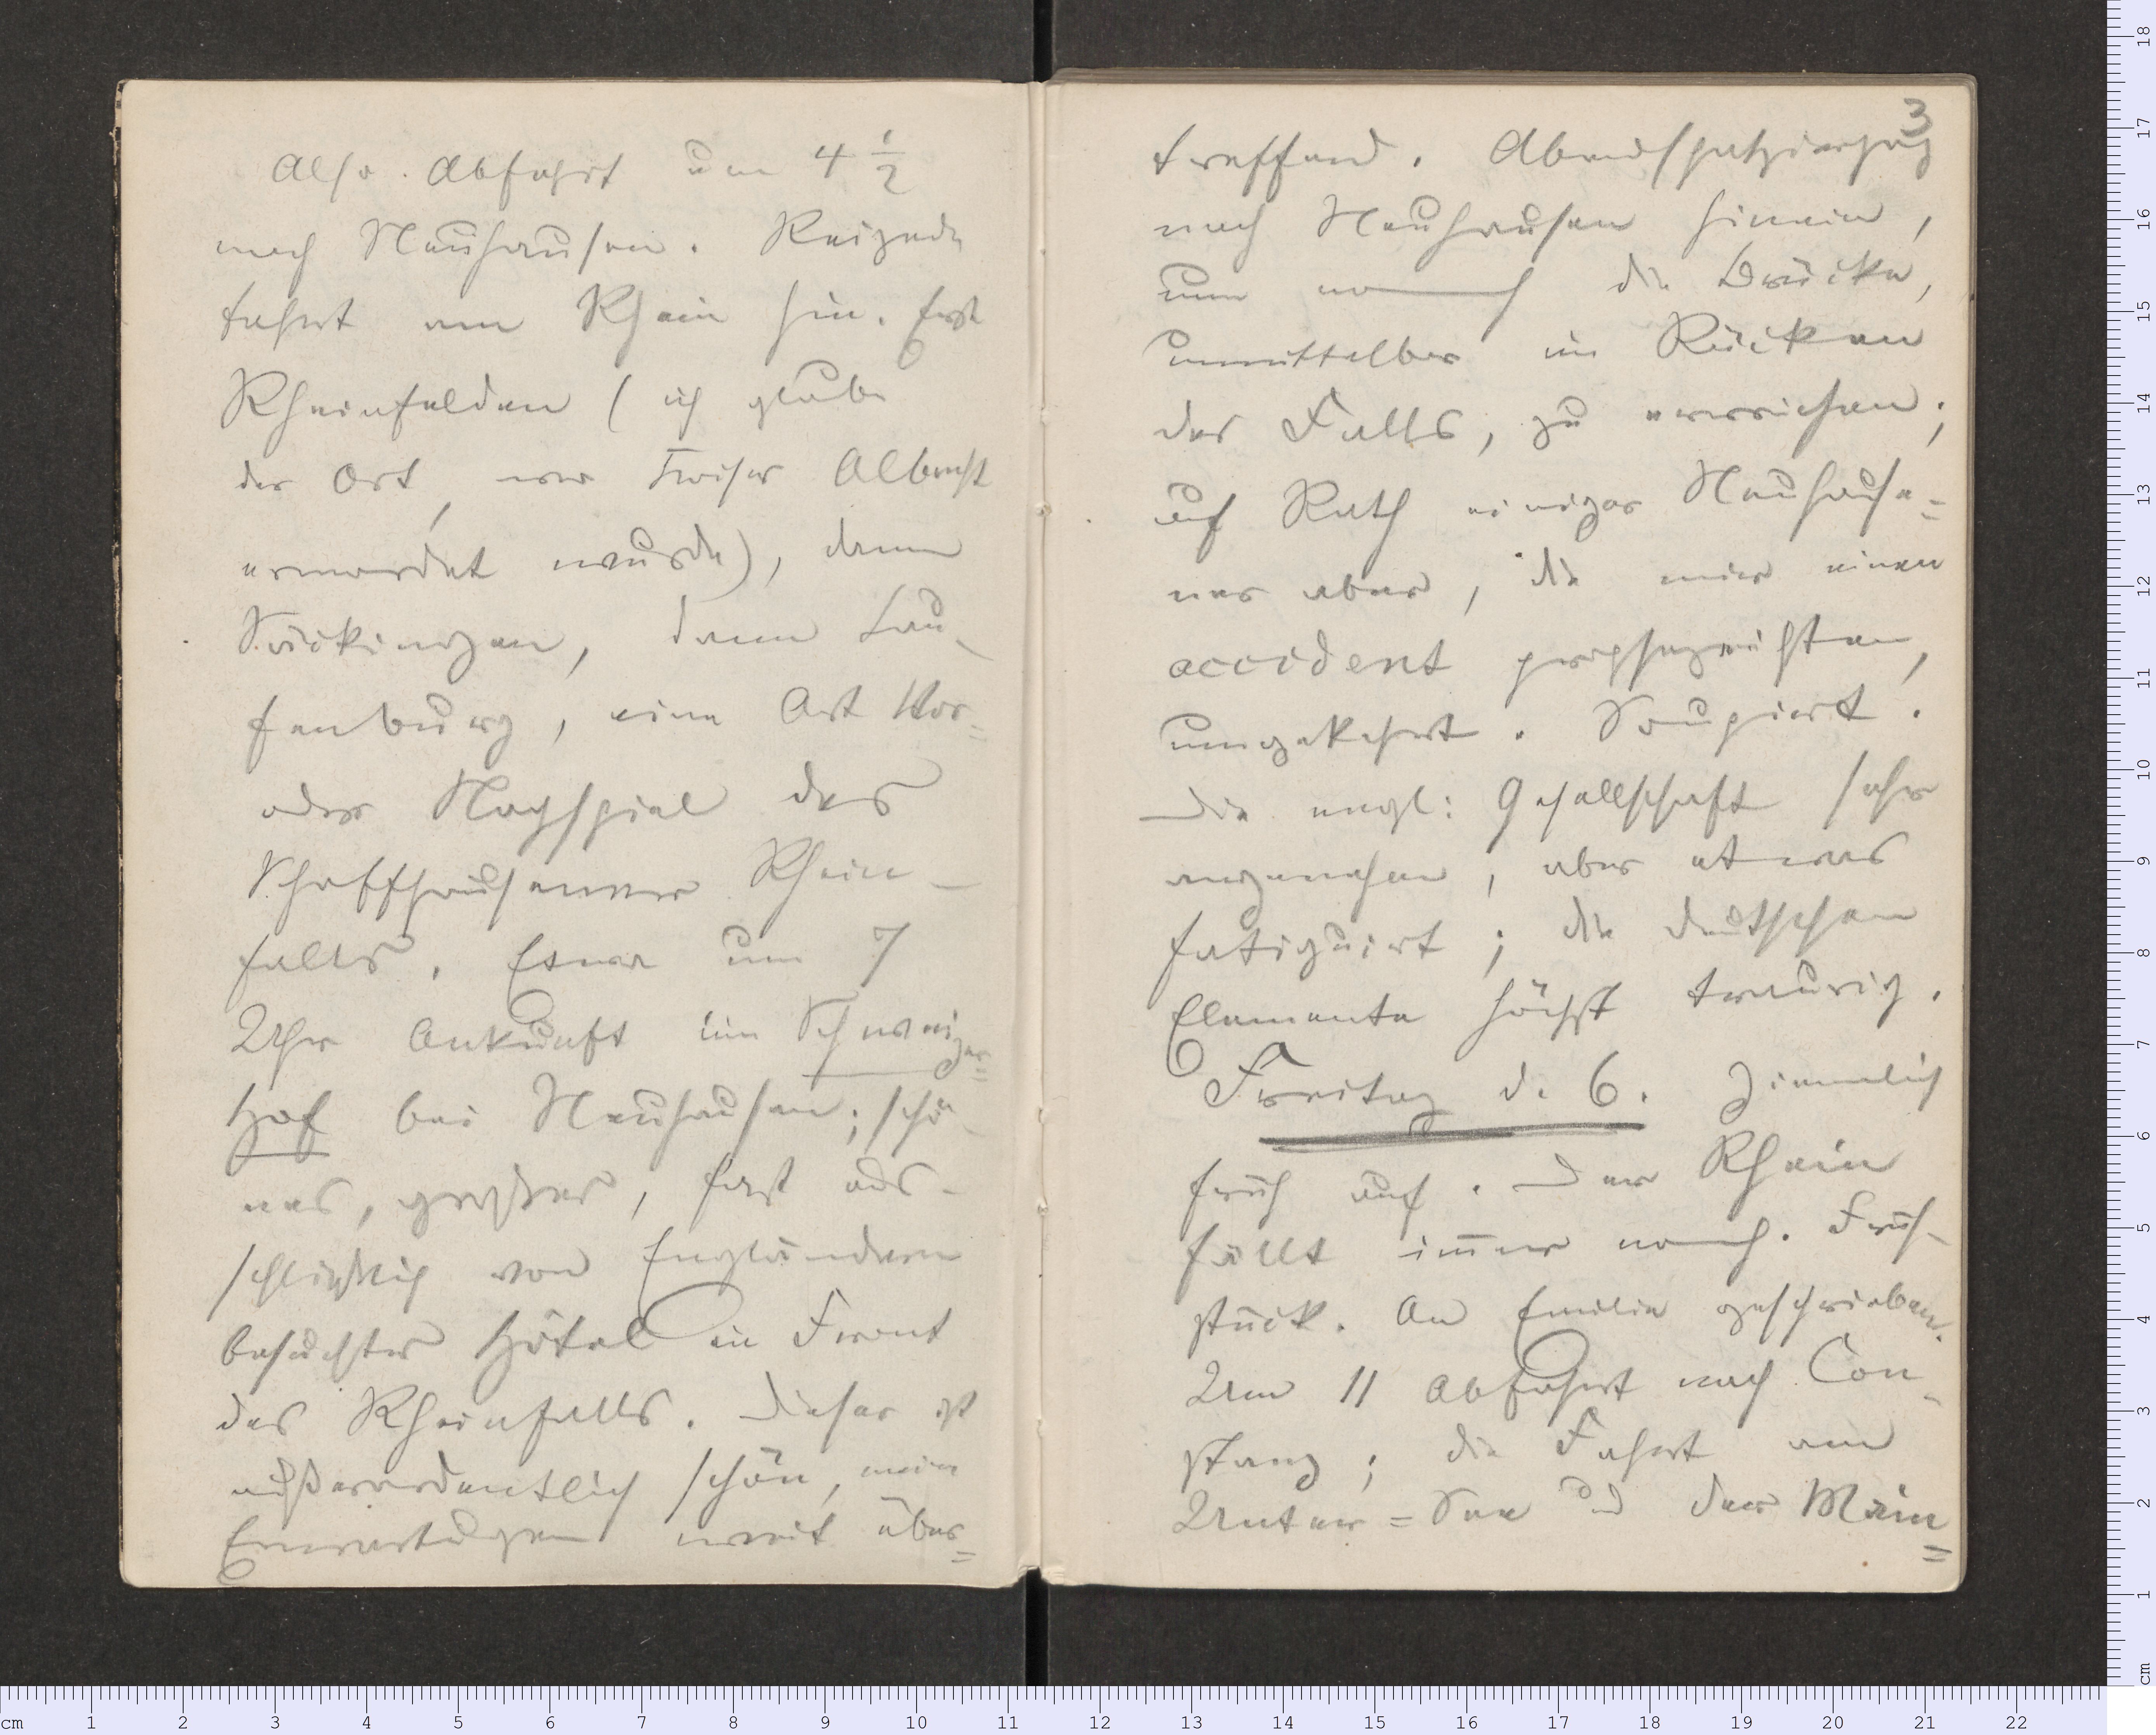 Also. Abfahrt um 4 1/2
nach Neuhausen. Reizende
Fahrt am Rhein hin. Erst
Rheinfelden (ich glaube
der Ort, wo Kaiser Albrecht
ermordet wurde), dann
Säckingen, dann Lau-
fenburg, eine Art Vor-
oder Nachspiel des
Schaffhausenner Rhein-
falls. Etwa um 7
Uhr Ankunft im Schweizer-
Hof bei Neuhausen; schö-
nes, großes, fast aus-
schließlich von Engländern
besuchtes Hôtel in Front
des Rheinfalls. Dieser ist
außerordentlich schön, meine
Erwartungen weit über-
3
treffend. Abendspatziergang
nach Neuhausen hinein,
um noch die Brücke,
unmittelbar im Rücken
des Falls, zu erreichen;
auf Rath einiger Neuhause-
ner aber, die mir einen
accident prophezeihten,
umgekehrt. Soupirt.
Die engl: Gesellschaft sehr
angenehm, aber etwas
fatiguirt; die deutschen
Elemente höchst traurig.
Freitag d. 6. Ziemlich
früh auf. Der Rhein
fällt im̅er noch. Früh-
stück. An Emilie geschrieben.
Um 11 Abfahrt nach Con-
stanz; die Fahrt am
Unter-See und der Main-